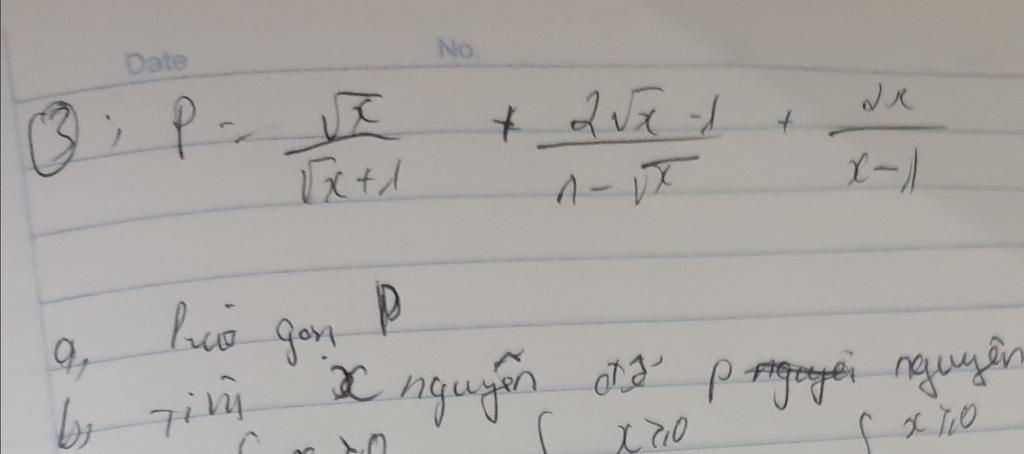 Date No.
③; P = √x/(√x+1) + (2√x-1)/(1-√x) + √x/(x-1)
a, Rút gọn P
b, Tìm x nguyên để P nguyên
{ x≥0 { x≥0